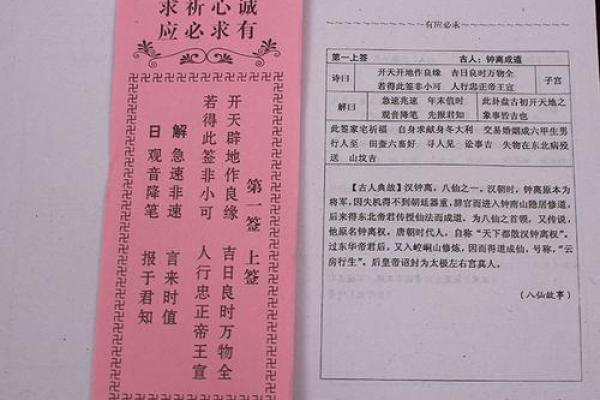 诚心祈求
有求必应
第一签 上签
开天辟地作良缘 吉日良时万物全
若得此签非小可 人行忠正帝王宣
解 急速非速 言来时值
日 观音降笔 报于君知
有应必求
第一上签 古人：钟离成道
诗曰 开天开地作良缘 吉日良时万物全 子宫
若得此签非小可 人行忠正帝王宣
解曰 急速兆速 年末值时 此卦盘古初开天地之
观音降笔 先报君知 象事皆吉也
此签家宅祈福 自身求献身冬大利 交易婚姻成六甲生男
行人至 田蚕六畜好 寻人见 讼事吉 失物在东北病殁
送 山坟吉
【古人典故】汉钟离，八仙之一，汉朝时，钟离原本为
将军，因失机得不到朝廷器重，辞官而进入钟南山隐居修道，
后来得东北帝君传授仙法而成道，为八仙之首领，又传说，
他原名钟离权，唐朝时代人，自称“天下都散汉钟离权”。
过东华帝君后，又入崆峒山修炼，因而得道成仙，号称，“云
房行生”，后皇帝诏封为太极左右宫真人。
（八仙故事）